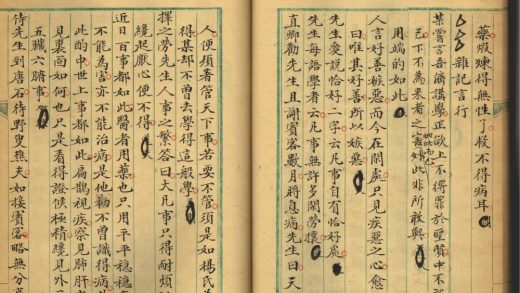 藥煅煉得無性了救不得病耳
雜記言行
某嘗言吾儕講學正欲上不得罪於聖賢中不
己下不為來者之害如此而已外此非所敢與
用端的如此
人言好善嫉惡而今在閒處只見疾惡之心愈
曰唯其好善所以嫉惡
先生愛說恰好二字云凡事自有恰好處
先生每語學者云凡事無許多閒勞攘
直卿勸先生且謝賓客數月將息病先生曰天
人便須著管天下事若要不管須是如楊氏
得某却不曾去學得這般學
擇之勞先生人事之繁答曰大凡事只得耐煩
纔起厭心便不得
近日百事都如此醫者用藥也只用平平穩穩
不能為害亦不能治病是他初不曾識得病
此酌中世上事都如此扁鵲視疾察見肺肝
見裏面如何也只是看得證候極精纔見外
五臟六腑事
侍先生到唐石待野叟樵夫如接賓客略無分